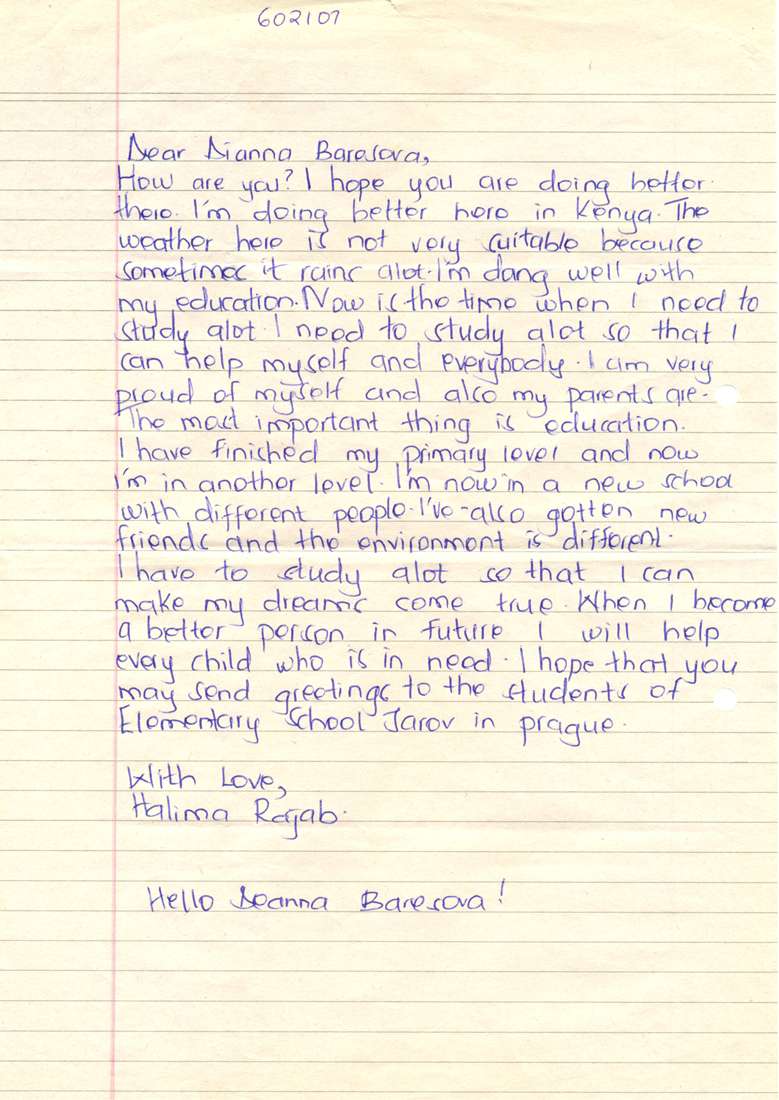 602107
Dear Dianna Baresova,
How are you? I hope you are doing better.
there. I'm doing better here in Kenya. The
weather here is not very suitable because
sometimes it rains alot. I'm doing well with
my education. Now is the time when I need to
study alot. I need to study alot so that I
can help myself and everybody. I am very
proud of myself and also my parents are.
The most important thing is education.
I have finished my primary level and now
I'm in another level. I'm now in a new school
with different people. I've also gotten new
friends and the environment is different.
I have to study alot so that I can
make my dreams come true. When I become
a better person in future I will help
every child who is in need. I hope that you
may send greetings to the students of
Elementary School Jarov in prague.
With Love,
Halima Rajab.
Hello Deanna Baresova!